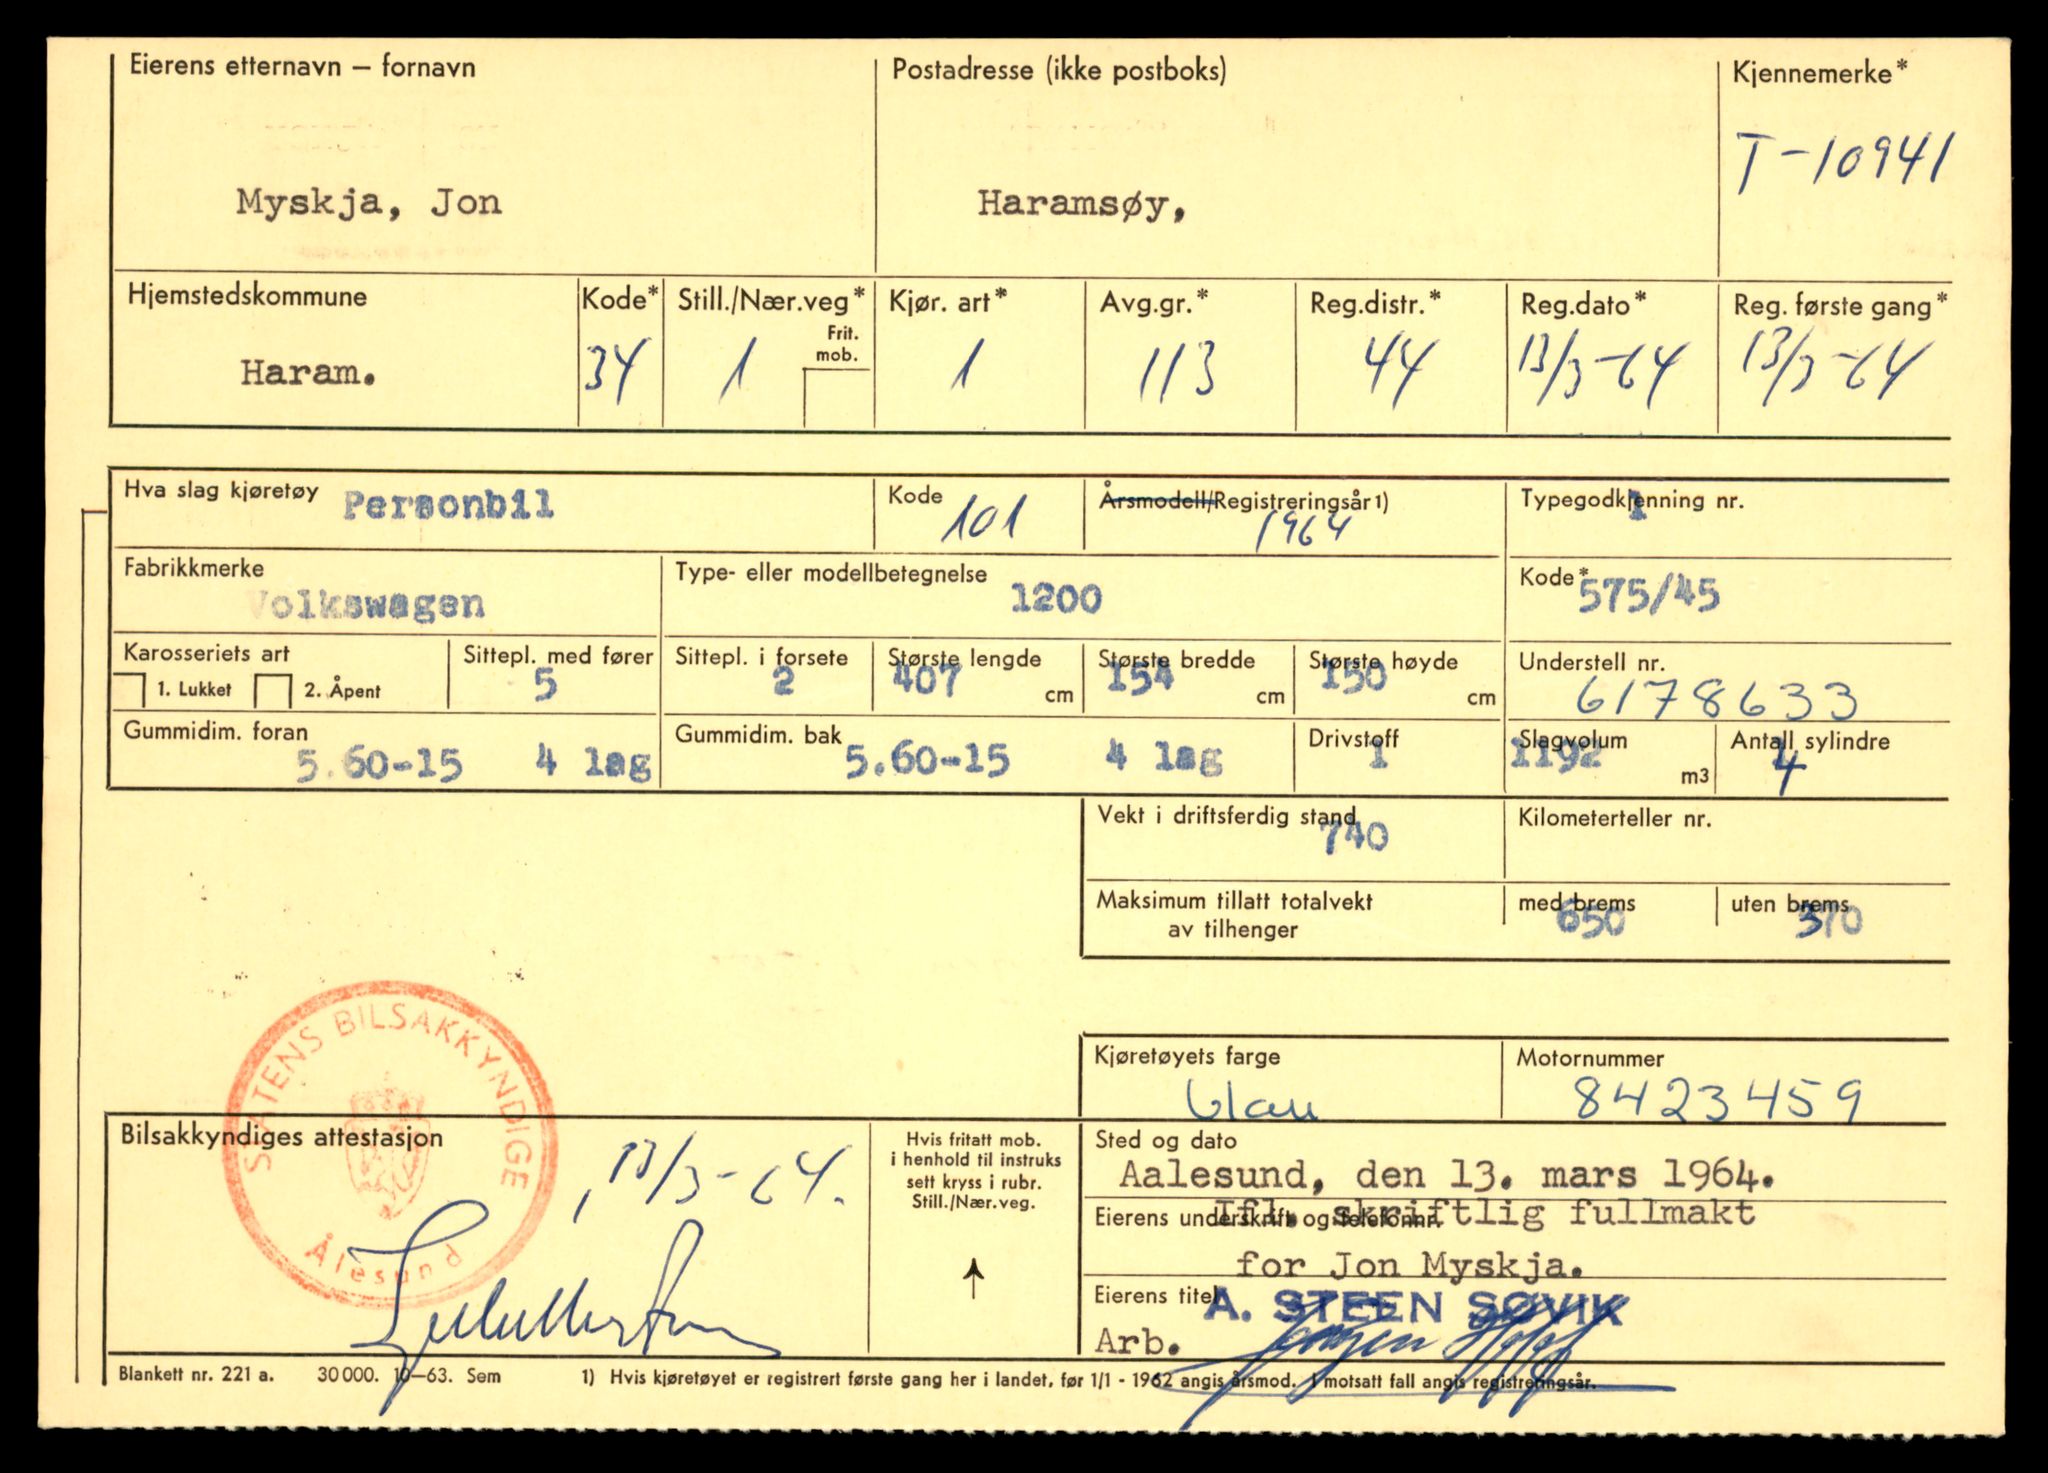 Eierens etternavn – fornavn
Postadresse (ikke postboks)
Kjennemerke*
T-10941
Myskja, Jon
Haramsøy,
Hjemstedskommune
Kode*
Still./Nær.veg*
Kjør. art*
Avg.gr.*
Reg.distr.*
Reg.dato*
Reg. første gang*
Frit. mob.
Haram.
34
1
1
113
44
13/3-64
13/3-64
Hva slag kjøretøy
Personbil
Kode
101
Årsmodell/Registreringsår 1)
1964
Typegodkjenning nr.
1
Fabrikkmerke
Volkswagen
Type- eller modellbetegnelse
1200
Kode*
575/45
Karosseriets art
1. Lukket
2. Åpent
Sittepl. med fører
5
Sittepl. i forsete
2
Største lengde
407 cm
Største bredde
154 cm
Største høyde
150 cm
Understell nr.
6178633
Gummidim. foran
5.60-15 4 lag
Gummidim. bak
5.60-15 4 lag
Drivstoff
1
Slagvolum
1192 m3
Antall sylindre
4
Vekt i driftsferdig stand
740
Kilometerteller nr.
Maksimum tillatt totalvekt
av tilhenger
med brems
650
uten brems
370
STATENS BILSAKKYNDIGE
Ålesund
Kjøretøyets farge
blau
Motornummer
8423459
Bilsakkyndiges attestasjon
, 13/3-64.
Hvis fritatt mob.
i henhold til instruks
sett kryss i rubr.
Still./Nær.veg.
Sted og dato
Aalesund, den 13. mars 1964.
Eierens underskrift og telefonnr.
Ifl. skriftlig fullmakt
for Jon Myskja.
Eierens titel
A. STEEN SØVIK
Arb.
Blankett nr. 221 a. 30 000. 10–63. Sem
1) Hvis kjøretøyet er registrert første gang her i landet, før 1/1 - 1962 angis årsmod. I motsatt fall angis registreringsår.